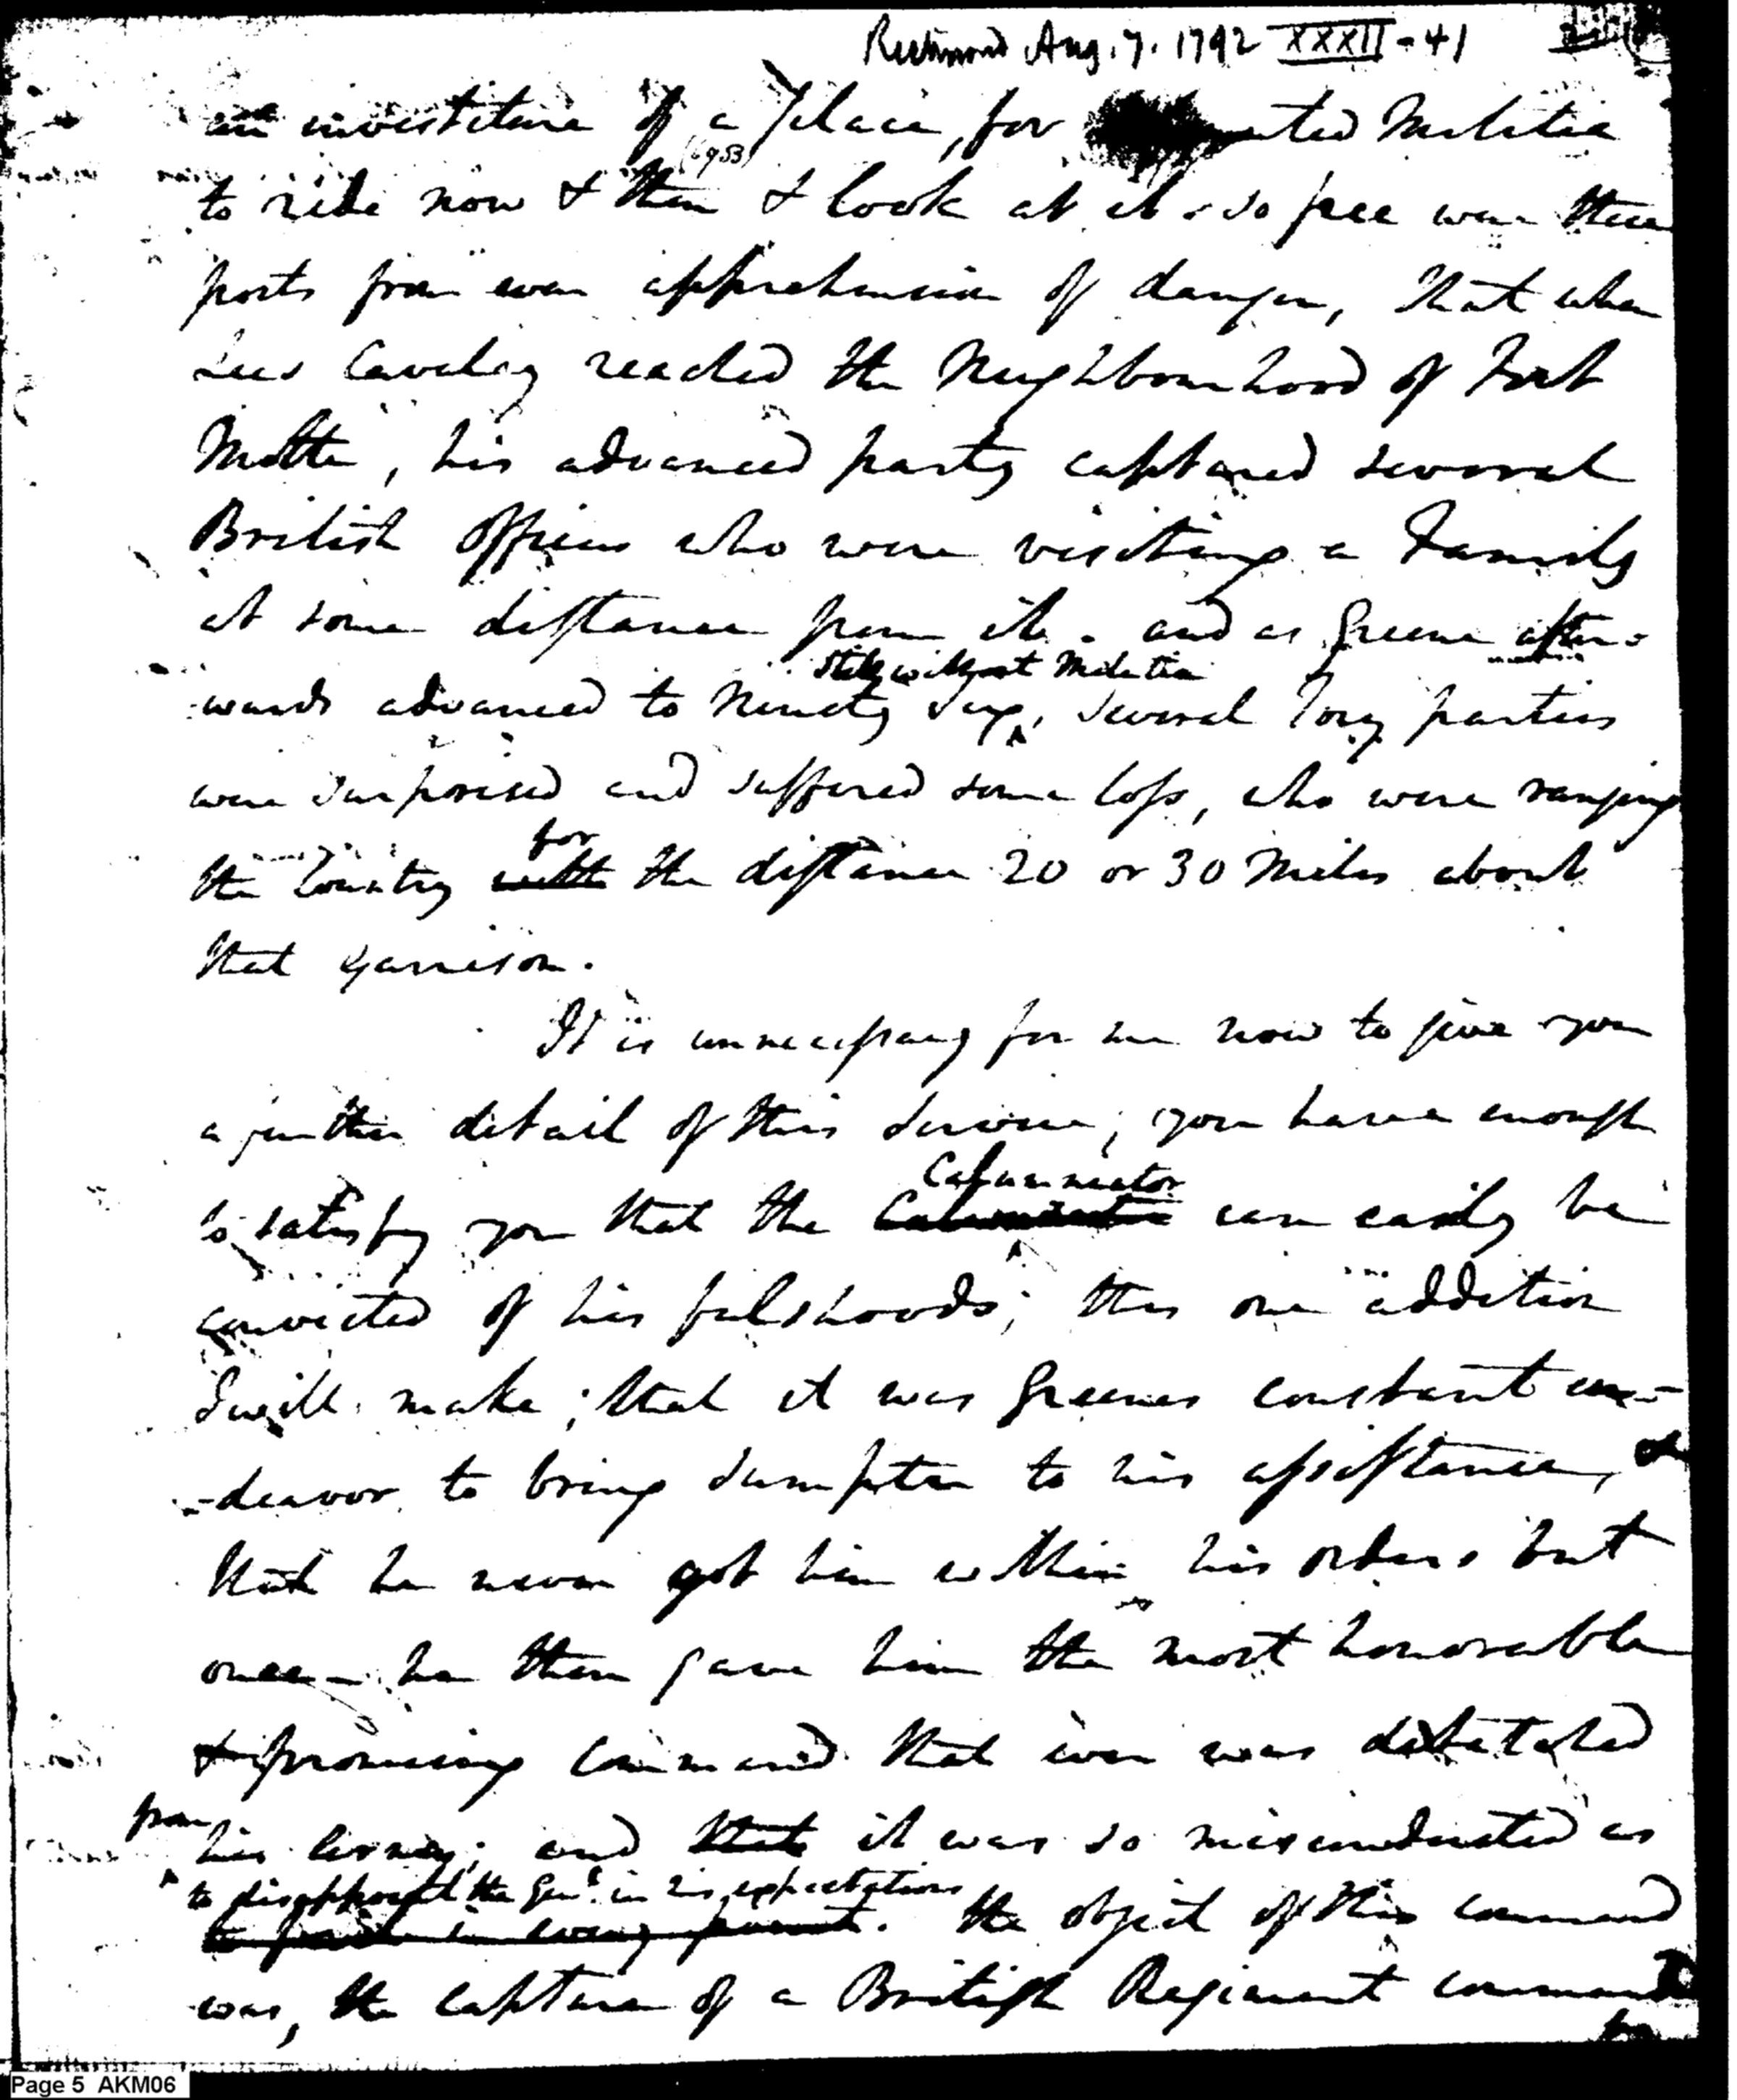 Richmond Aug. 7. 1792 XXXII - 41
an investiture of a place, for ated Militia
(6953)
to ride now & then & look at it. so free were these
posts from even apprehension of danger, that when
Lees Cavalry reached the Neighbourhood of Fort
Motte, his advanced party captured several
British Officers who were visiting a Family
at some distance from it. and as Greene after-
still without Militia
wards advanced to Ninety Six, several Tory parties
were surprised and suffered some loss, who were ranging
for
the Country with the distance 20 or 30 Miles about
that garrison.
It is unnecessary for me now to give you
a further detail of this service; you have enough
Calumniator
to satisfy you that the can easily be
convicted of his falshoods; this one addition
I will make; that it was Greenes constant en-
-deavor to bring Sumpter to his assistance, &
that he never got him within his orders but
once - he then gave him the most honorable
& promising Command that ever was detatched
from
his Army; and that it was so misconducted as
to disappoint the Genl. in his expectations
. the object of this command
was, the capture of a British Regiment command
Page 5 AKM06